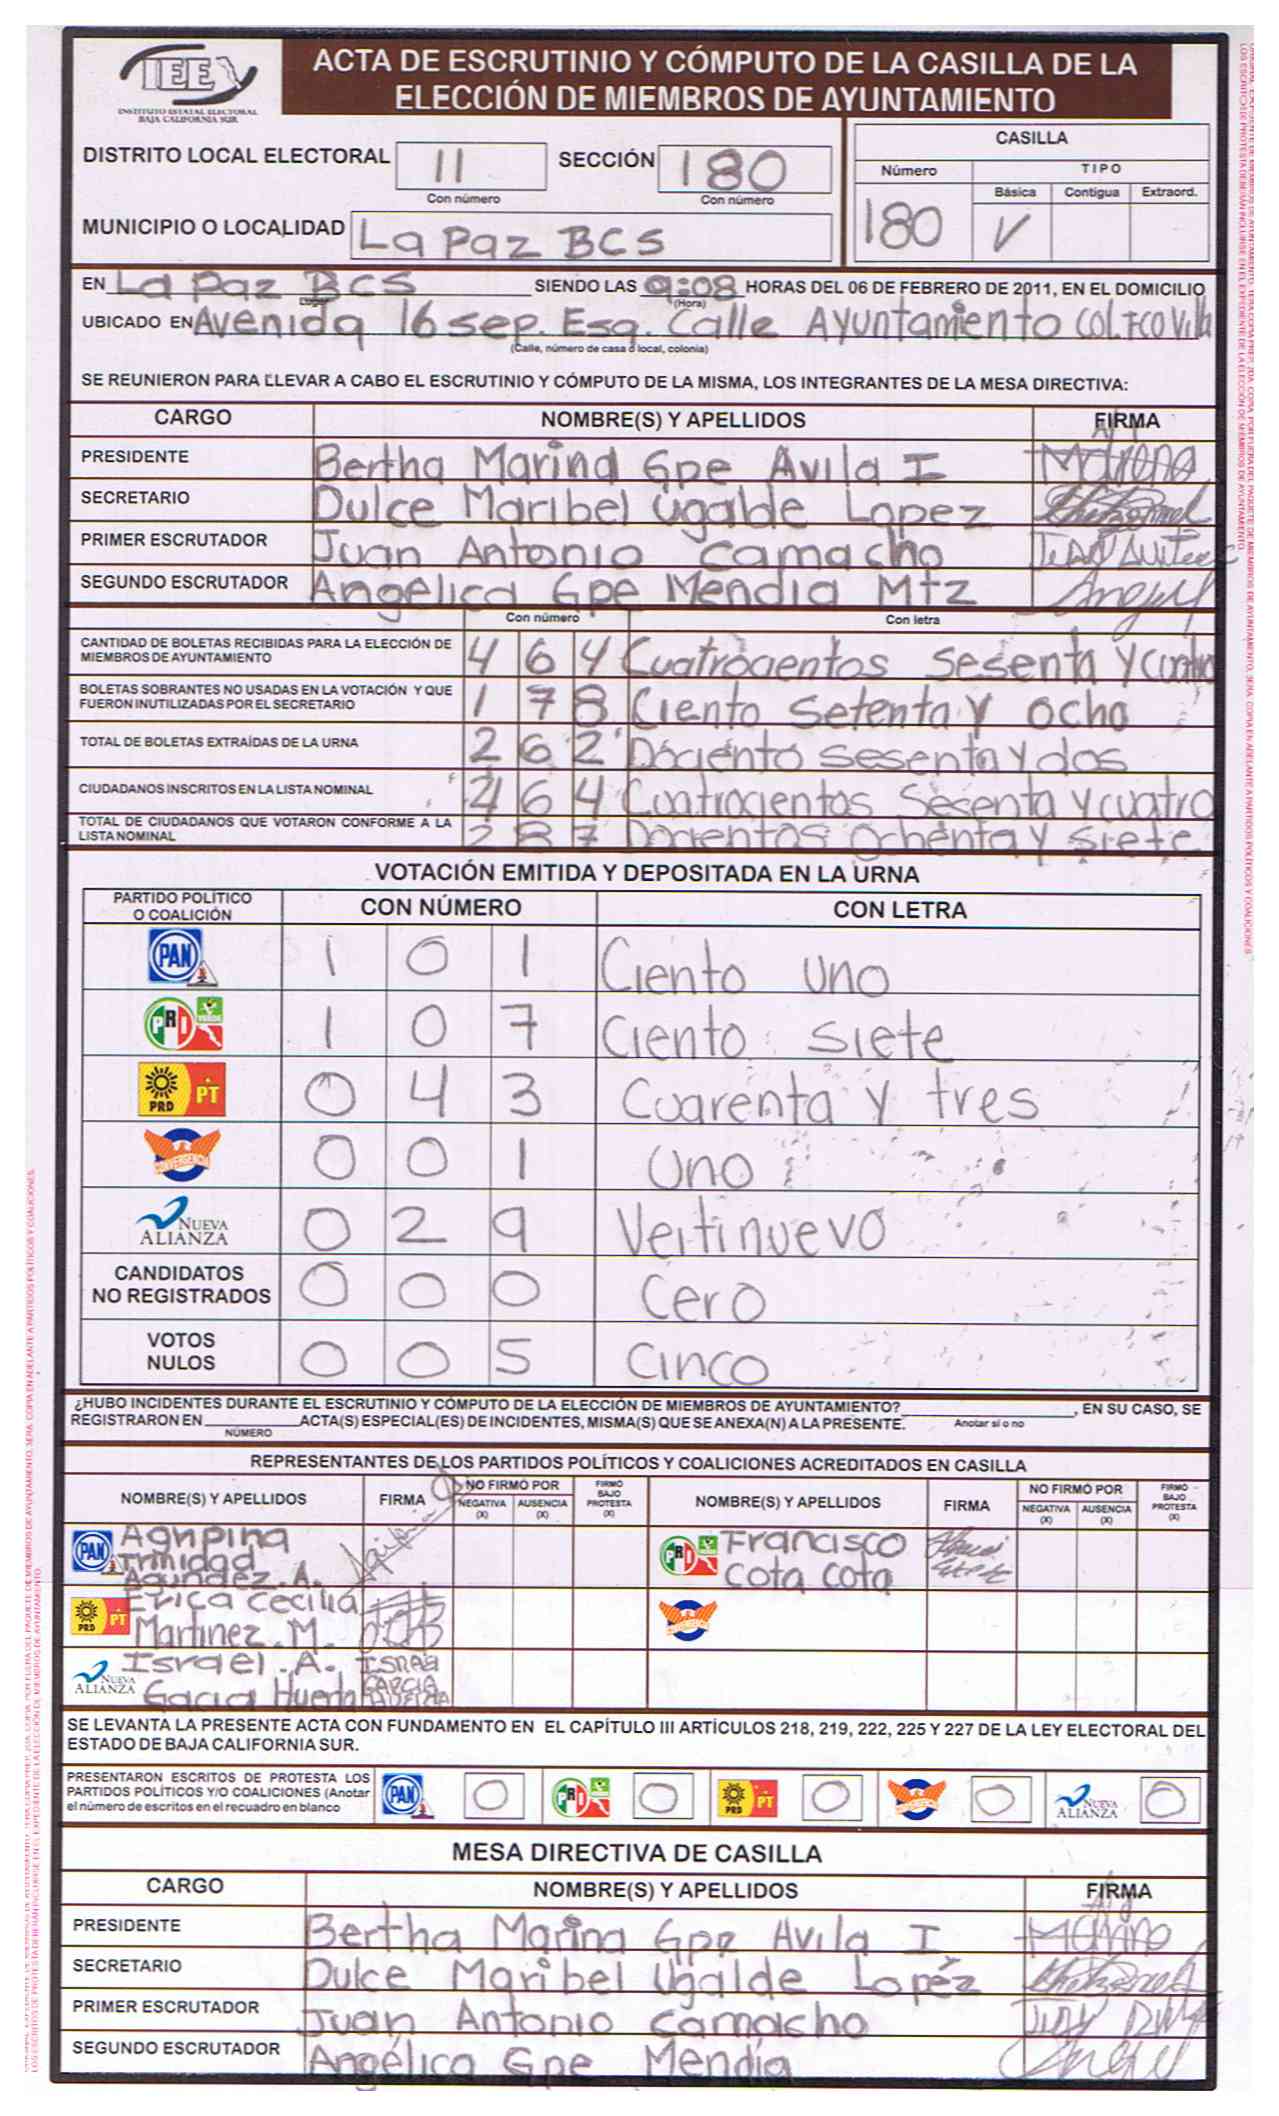 IEE
INSTITUTO ESTATAL ELECTORAL
BAJA CALIFORNIA SUR
ACTA DE ESCRUTINIO Y CÓMPUTO DE LA CASILLA DE LA
ELECCIÓN DE MIEMBROS DE AYUNTAMIENTO
DISTRITO LOCAL ELECTORAL 11 SECCIÓN 180
Con número Con número
MUNICIPIO O LOCALIDAD La Paz BCS
CASILLA
Número TIPO
Básica Contigua Extraord.
180 ✓
EN La Paz BCS SIENDO LAS 9:08 HORAS DEL 06 DE FEBRERO DE 2011, EN EL DOMICILIO
Lugar (Hora)
UBICADO EN Avenida 16 sep. Esq. Calle Ayuntamiento Col. Fco Villa
(Calle, número de casa o local, colonia)
SE REUNIERON PARA LLEVAR A CABO EL ESCRUTINIO Y CÓMPUTO DE LA MISMA, LOS INTEGRANTES DE LA MESA DIRECTIVA:
CARGO NOMBRE(S) Y APELLIDOS FIRMA
PRESIDENTE Bertha Marina Gpe Avila I
SECRETARIO Dulce Maribel Ugalde Lopez
PRIMER ESCRUTADOR Juan Antonio Camacho
SEGUNDO ESCRUTADOR Angelica Gpe Mendia Mtz
Con número Con letra
CANTIDAD DE BOLETAS RECIBIDAS PARA LA ELECCIÓN DE
MIEMBROS DE AYUNTAMIENTO 4 6 4 Cuatrocientos Sesenta y cuatro
BOLETAS SOBRANTES NO USADAS EN LA VOTACIÓN Y QUE
FUERON INUTILIZADAS POR EL SECRETARIO 1 7 8 Ciento Setenta y Ocho
TOTAL DE BOLETAS EXTRAÍDAS DE LA URNA 2 6 2 Dociento sesenta y dos
CIUDADANOS INSCRITOS EN LA LISTA NOMINAL 4 6 4 Cuatrocientos Sesenta y cuatro
TOTAL DE CIUDADANOS QUE VOTARON CONFORME A LA
LISTA NOMINAL 2 8 7 Docientos Ochenta y siete
VOTACIÓN EMITIDA Y DEPOSITADA EN LA URNA
PARTIDO POLÍTICO
O COALICIÓN CON NÚMERO CON LETRA
PAN 1 0 1 Ciento Uno
PRI VERDE 1 0 7 Ciento siete
PRD PT 0 4 3 Cuarenta y tres
CONVERGENCIA 0 0 1 Uno
NUEVA ALIANZA 0 2 9 Veitinuevo
CANDIDATOS
NO REGISTRADOS 0 0 0 Cero
VOTOS
NULOS 0 0 5 Cinco
¿HUBO INCIDENTES DURANTE EL ESCRUTINIO Y CÓMPUTO DE LA ELECCIÓN DE MIEMBROS DE AYUNTAMIENTO? , EN SU CASO, SE
REGISTRARON EN ACTA(S) ESPECIAL(ES) DE INCIDENTES, MISMA(S) QUE SE ANEXA(N) A LA PRESENTE. Anotar sí o no
NÚMERO
REPRESENTANTES DE LOS PARTIDOS POLÍTICOS Y COALICIONES ACREDITADOS EN CASILLA
NOMBRE(S) Y APELLIDOS FIRMA NO FIRMÓ POR NEGATIVA (X) AUSENCIA (X) FIRMÓ BAJO PROTESTA (X) NOMBRE(S) Y APELLIDOS FIRMA NO FIRMÓ POR NEGATIVA (X) AUSENCIA (X) FIRMÓ BAJO PROTESTA (X)
PAN Agripina
Trinidad
Agundez. A.
PRI Francisco
Cota Cota
PRD PT Erica Cecilia
Martinez. M.
CONVERGENCIA
NUEVA ALIANZA Israel. A.
Gacia Huerta
ISRAEL
GARCIA
HUERTA
SE LEVANTA LA PRESENTE ACTA CON FUNDAMENTO EN EL CAPÍTULO III ARTÍCULOS 218, 219, 222, 225 Y 227 DE LA LEY ELECTORAL DEL
ESTADO DE BAJA CALIFORNIA SUR.
PRESENTARON ESCRITOS DE PROTESTA LOS
PARTIDOS POLÍTICOS Y/O COALICIONES (Anotar
el número de escritos en el recuadro en blanco
PAN 0 PRI 0 PRD PT 0 CONVERGENCIA 0 NUEVA ALIANZA 0
MESA DIRECTIVA DE CASILLA
CARGO NOMBRE(S) Y APELLIDOS FIRMA
PRESIDENTE Bertha Marina Gpe Avila I
SECRETARIO Dulce Maribel Ugalde Lopéz
PRIMER ESCRUTADOR Juan Antonio Camacho
SEGUNDO ESCRUTADOR Angélica Gpe Mendía